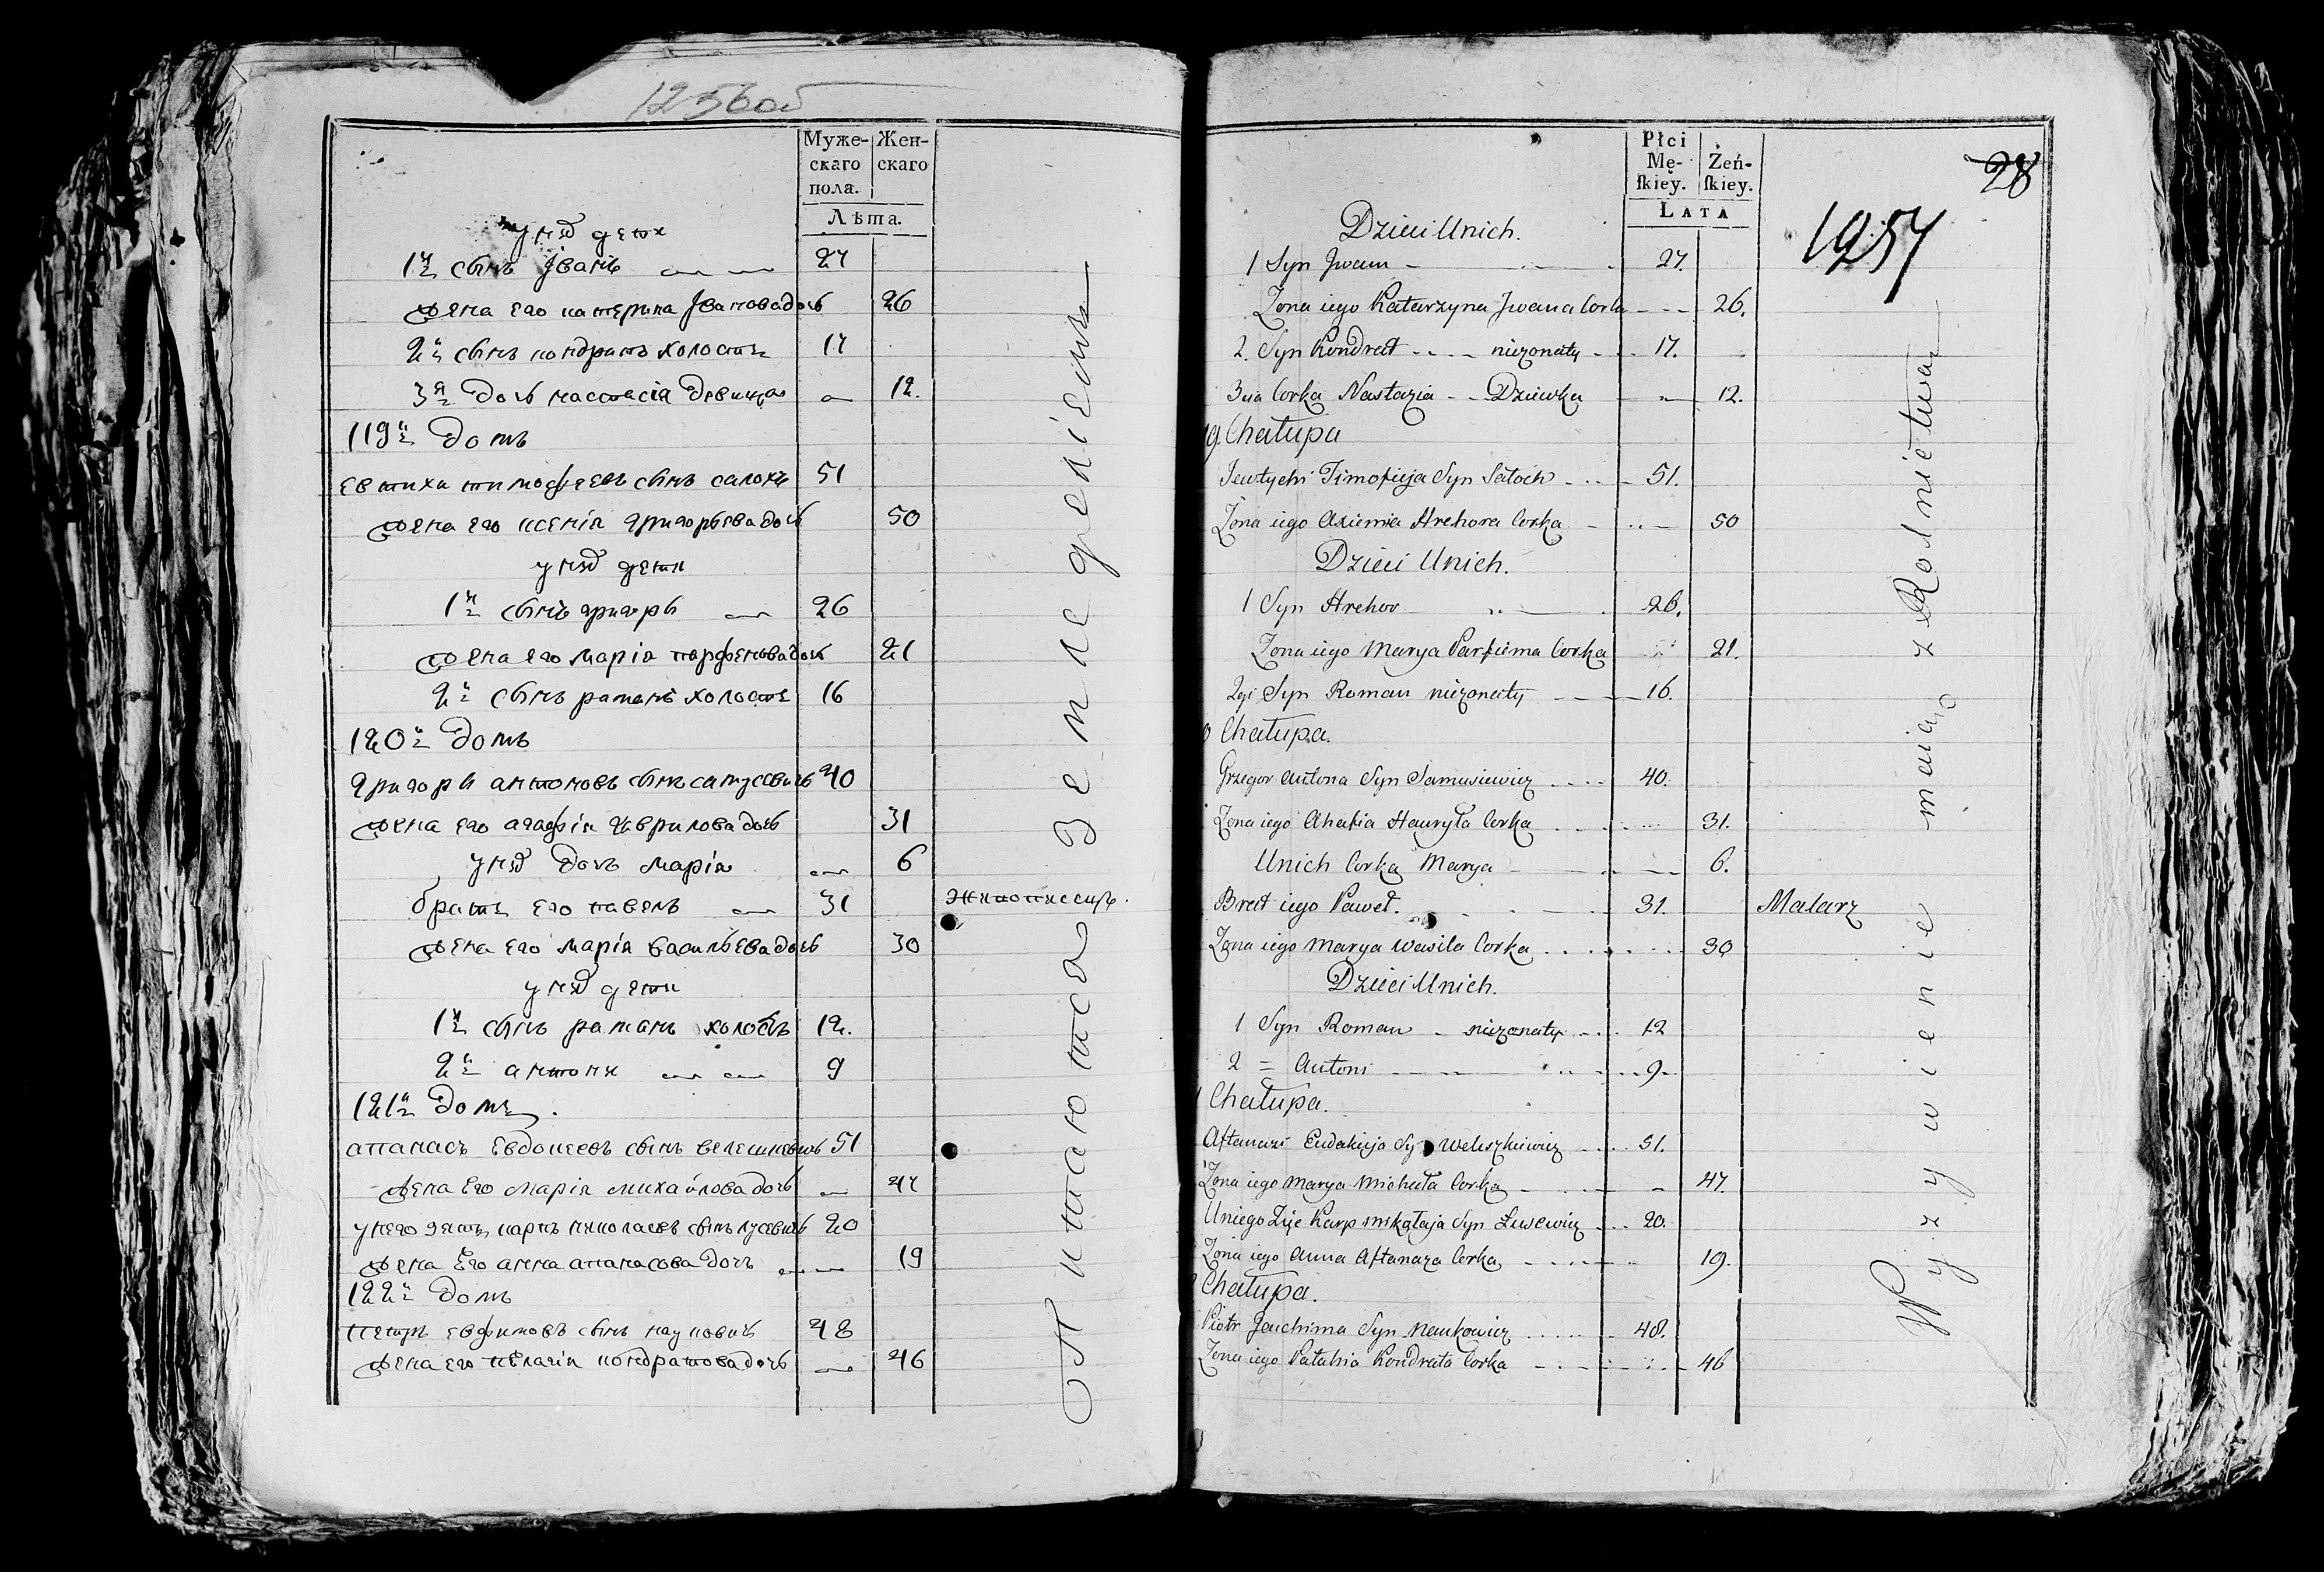 1256об
Муже-
скаго
пола.
Жен-
скаго
Лѣта.
у них дети
1й сынъ Іванъ 27
жена его катерина Івановадочь 26
2й сынъ кондратъ холостъ 17
3я дочь настасія девица 12.
119й домъ
евтихи тимофеевъ сынъ салохъ 51
жена его ксенія григорьевадочь 50
у них дети
1й сынъ григоры 26
жена его марія парфеновадочь 21
2й сынъ раманъ холостъ 16
120й домъ
григоры антоновъ сынъ самусевичъ 40
жена его агафія гавриловадочь 31
у них дочь марія 6
братъ его павелъ 31 живописецъ.
жена его марія васильевадочь 30
у них дети
1й сынъ раманъ холостъ 12.
2й антони 9
121й домъ.
апанасъ евдокеевъ сынъ велешкевичъ 51
жена его марія михайловадочь 47
у него зять карпъ николаевъ сынъ лусевичъ 20
жена его анна апанасовадочь 19
122й домъ
петръ евфимовъ сынъ науковичъ 48
жена его пелагія кондратовадочь 46
Пропитаются земледеліемъ
Płci
Mę-
ſkiey.
Żeń-
ſkiey.
LATA
28
1257
Dzieci Unich.
1 Syn Jwan 27.
Zona iego Katarzyna Jwana Corka 26.
2. Syn Kondrat niezonaty 17.
3cia Corka Nastazia Dziewka 12.
9. Chałupa
Jewtychi Timofieja Syn Sałoch 51.
Zona iego Axienia Hrehora Corka 50
Dzieci Unich.
1 Syn Hrehor 26.
Zona iego Marya Parfiema Corka 21.
2gi Syn Roman niezonaty 16.
0 Chałupa.
Grzegor Antona Syn Samusiewicz 40.
Zona iego Ahafia Hawryła Corka 31.
Unich Corka Marya 6.
Brat iego Paweł. 31. Malarz
Zona iego Marya Wasila Corka 30
Dzieci Unich.
1 Syn Roman niezonaty 12
2 = Antoni 9
1 Chałupa.
Aftanazi Eudakieja Syn Weleszkiewicz 51.
Zona iego Marya Michała Corka 47.
Uniego Zięć Karp Mikołaja Syn Łusewicz 20.
Zona iego Anna Aftanaza Corka 19.
Chałupa.
Piotr Jauchima Syn Naukowicz 48.
Zona iego Pałahia Kondrata Corka 46
Wyzywienie maią z Rolnictwa